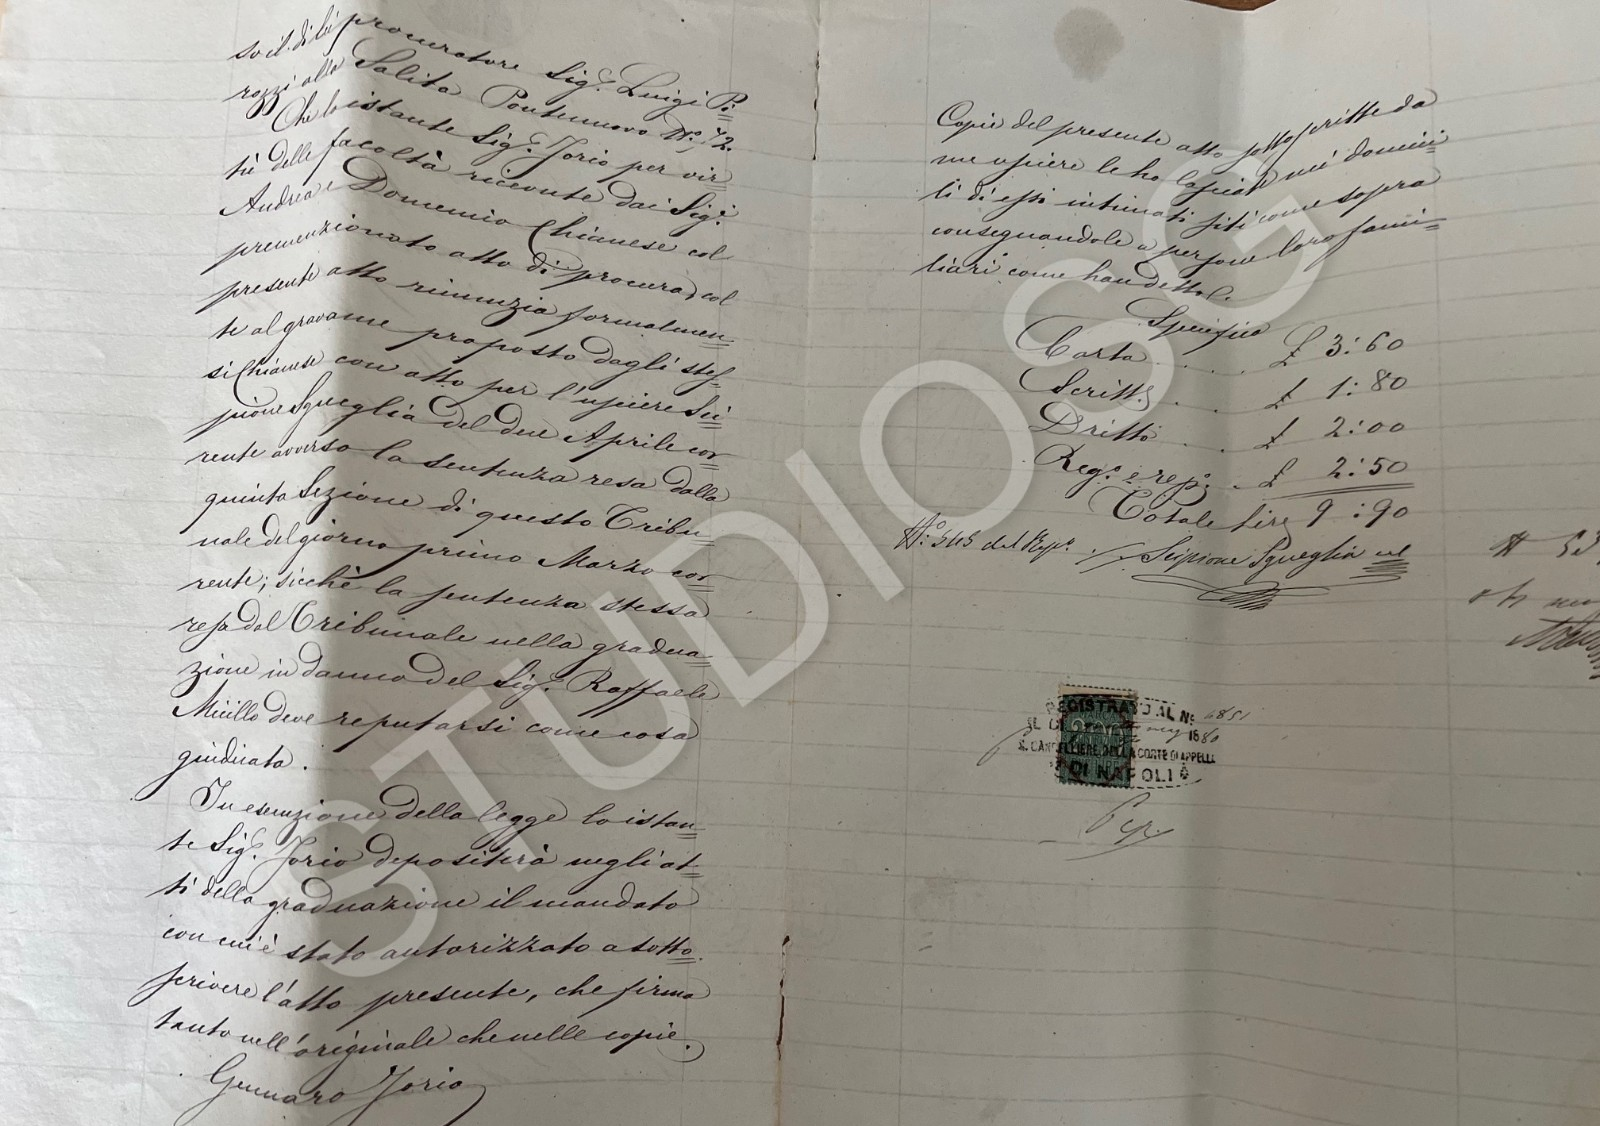 so il di lui procuratore Sig.r Luigi Pi=
rozzi alla Salita Pontenuovo N.o 72.
Che lo istante Sig.r Jorio per vir=
tù delle facoltà ricevute dai Sig.i
Andrea e Domenico Chianese col
premenzionato atto di procura, col
presente atto rinunzia formalmen=
te al gravame proposto dagli stes=
si Chianese con atto per l'usciere Sci=
pione Squeglia del due Aprile cor=
rente avverso la sentenza resa dalla
quinta Sezione di questo Tribu=
nale del giorno primo Marzo cor=
rente; sicchè la sentenza stessa
resa dal Tribunale nella gradua=
zione in danno del Sig.r Raffaele
Micillo deve reputarsi come cosa
giudicata.
In esenzione della legge lo istan=
te Sig.r Jorio depositerà negli at=
ti della graduazione il mandato
con cui è stato autorizzato a sotto=
scrivere l'atto presente, che firma
tanto nell'originale che nelle copie.
Gennaro Jorio
Copie del presente atto sottoscritte da
me usciere le ho lasciate nei domici=
li di essi intimati siti come sopra
consegnandole a persone loro fami=
liari come han detto.
Specifica
Carta . . . . £ 3:60
Scritt.a . . . £ 1:80
Dritto . . . £ 2:00
Reg.o e rep.o . £ 2:50
Totale lire 9:90
N.o 545 del Rep.o Scipione Squeglia
REGISTRATO AL N.o 6851
IL DI
IL CANCELLIERE DELLA CORTE DI APPELLO
DI NAPOLI
STUDIOSG